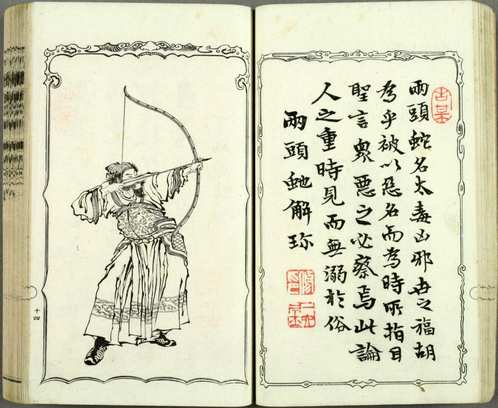 兩頭蛇名太毒凶邪之福胡
為乎被以惡名而為時所指目
聖言眾惡之必察焉此論
人之重時見而無溺於俗
兩頭虵解珍
十四